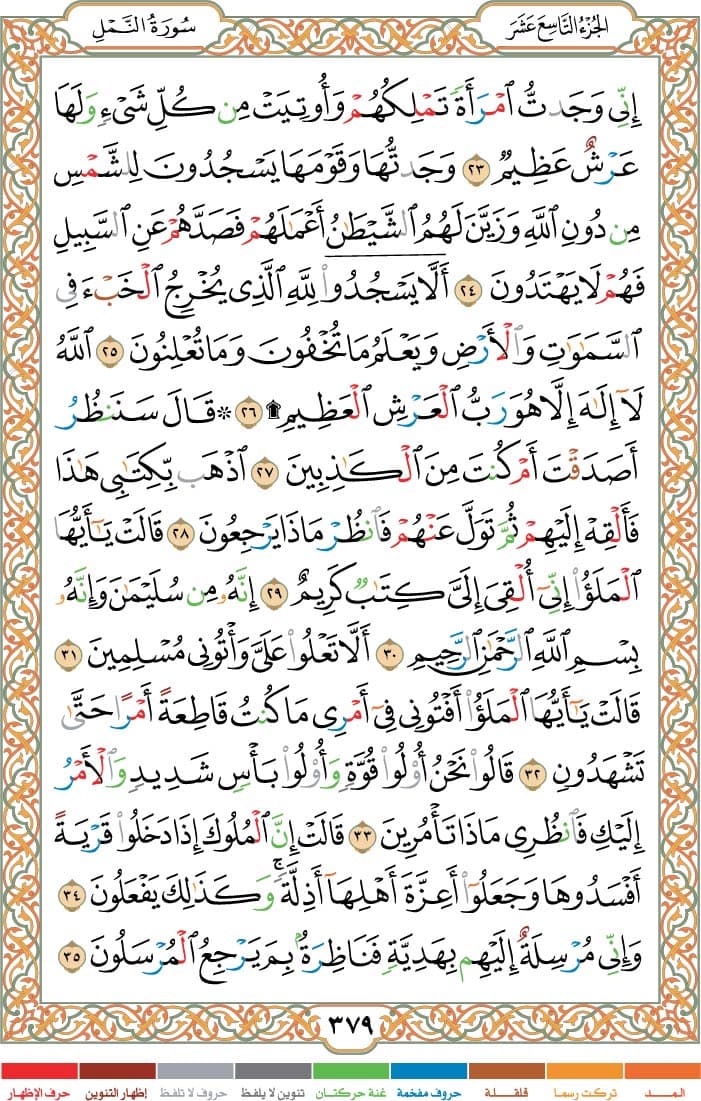 الجزء التاسع عشر
سورة النمل
إِنِّي وَجَدتُّ ٱمْرَأَةً تَمْلِكُهُمْ وَأُوتِيَتْ مِن كُلِّ شَىْءٍ وَلَهَا
عَرْشٌ عَظِيمٌ ٢٣ وَجَدتُّهَا وَقَوْمَهَا يَسْجُدُونَ لِلشَّمْسِ
مِن دُونِ ٱللَّهِ وَزَيَّنَ لَهُمُ ٱلشَّيْطَٰنُ أَعْمَٰلَهُمْ فَصَدَّهُمْ عَنِ ٱلسَّبِيلِ
فَهُمْ لَا يَهْتَدُونَ ٢٤ أَلَّا يَسْجُدُوا۟ لِلَّهِ ٱلَّذِى يُخْرِجُ ٱلْخَبْءَ فِى
ٱلسَّمَٰوَٰتِ وَٱلْأَرْضِ وَيَعْلَمُ مَا تُخْفُونَ وَمَا تُعْلِنُونَ ٢٥ ٱللَّهُ
لَآ إِلَٰهَ إِلَّا هُوَ رَبُّ ٱلْعَرْشِ ٱلْعَظِيمِ ۩ ٢٦ ۞ قَالَ سَنَنظُرُ
أَصَدَقْتَ أَمْ كُنتَ مِنَ ٱلْكَٰذِبِينَ ٢٧ ٱذْهَب بِّكِتَٰبِى هَٰذَا
فَأَلْقِهْ إِلَيْهِمْ ثُمَّ تَوَلَّ عَنْهُمْ فَٱنظُرْ مَاذَا يَرْجِعُونَ ٢٨ قَالَتْ يَٰٓأَيُّهَا
ٱلْمَلَؤُا۟ إِنِّىٓ أُلْقِىَ إِلَىَّ كِتَٰبٌ كَرِيمٌ ٢٩ إِنَّهُۥ مِن سُلَيْمَٰنَ وَإِنَّهُۥ
بِسْمِ ٱللَّهِ ٱلرَّحْمَٰنِ ٱلرَّحِيمِ ٣٠ أَلَّا تَعْلُوا۟ عَلَىَّ وَأْتُونِى مُسْلِمِينَ ٣١
قَالَتْ يَٰٓأَيُّهَا ٱلْمَلَؤُا۟ أَفْتُونِى فِىٓ أَمْرِى مَا كُنتُ قَاطِعَةً أَمْرًا حَتَّىٰ
تَشْهَدُونِ ٣٢ قَالُوا۟ نَحْنُ أُو۟لُوا۟ قُوَّةٍ وَأُو۟لُوا۟ بَأْسٍ شَدِيدٍ وَٱلْأَمْرُ
إِلَيْكِ فَٱنظُرِى مَاذَا تَأْمُرِينَ ٣٣ قَالَتْ إِنَّ ٱلْمُلُوكَ إِذَا دَخَلُوا۟ قَرْيَةً
أَفْسَدُوهَا وَجَعَلُوٓا۟ أَعِزَّةَ أَهْلِهَآ أَذِلَّةً ۖ وَكَذَٰلِكَ يَفْعَلُونَ ٣٤
وَإِنِّى مُرْسِلَةٌ إِلَيْهِم بِهَدِيَّةٍ فَنَاظِرَةٌۢ بِمَ يَرْجِعُ ٱلْمُرْسَلُونَ ٣٥
٣٧٩
المـــد تركت رسما قلقـلـة حروف مفخمة غنة حركتان تنوين لا يلفظ حروف لا تلفظ إظهار التنوين حرف الإظهار